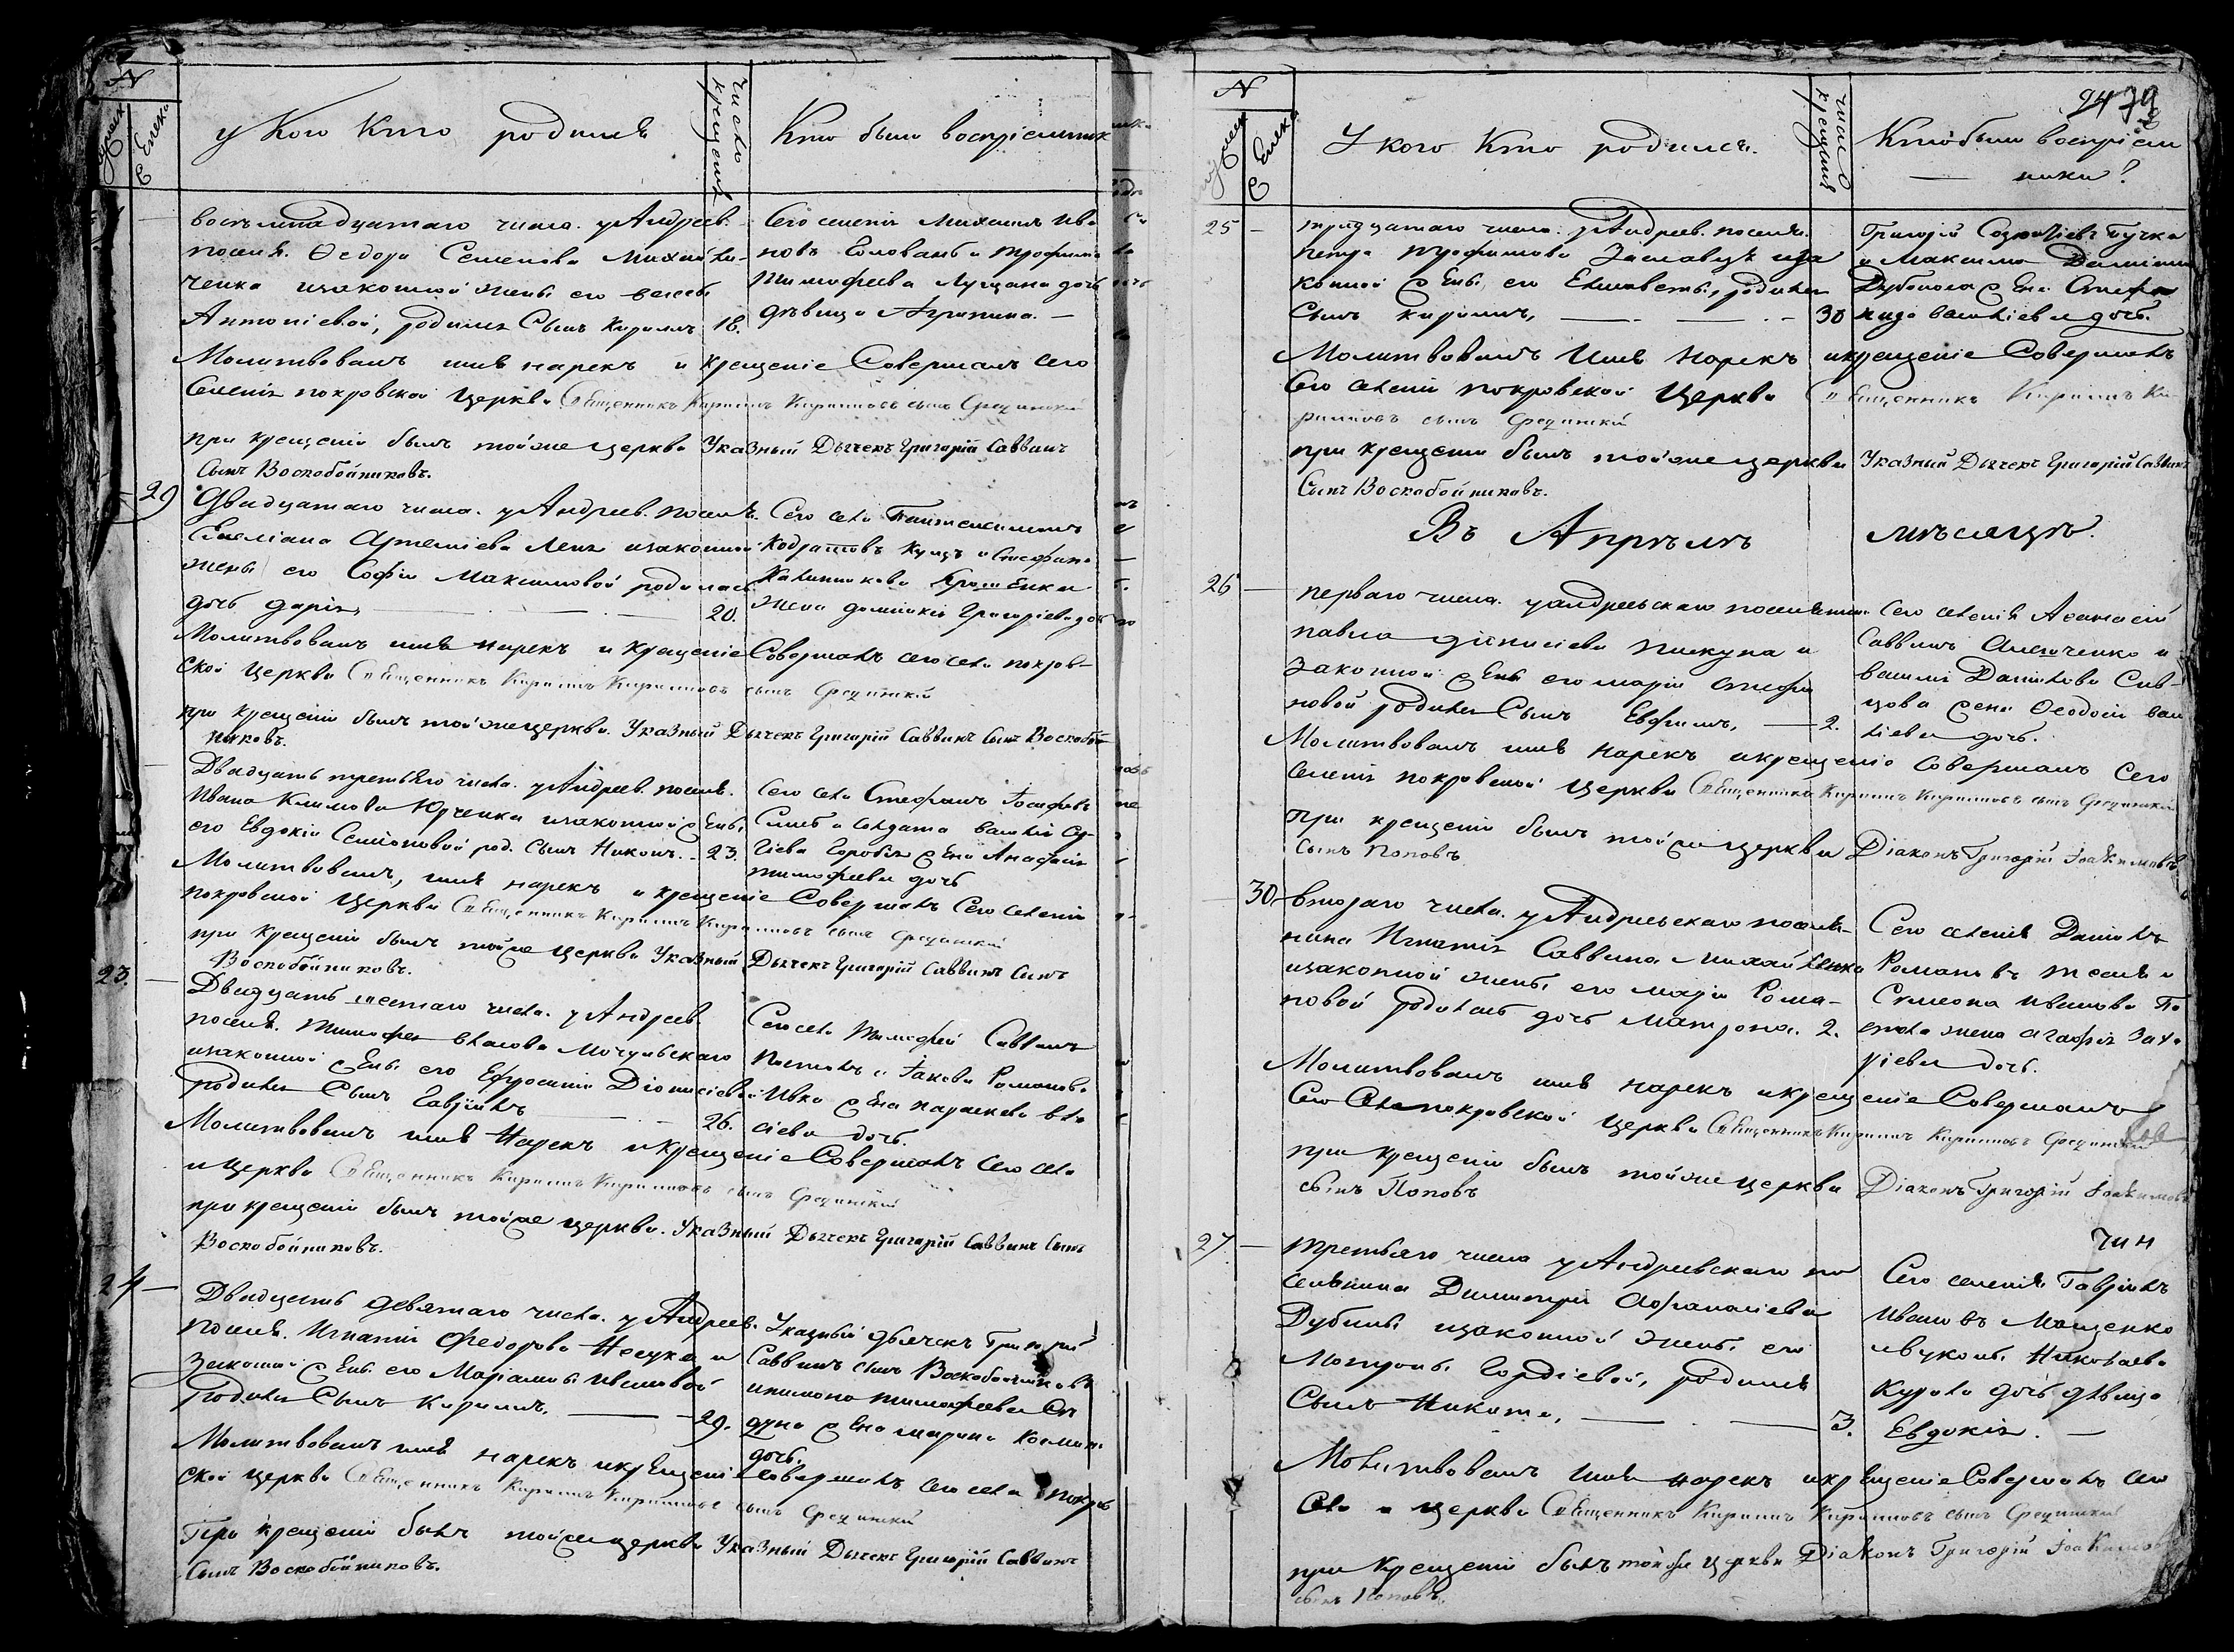 N
Мужеска
Женска
у Кого Кто родился
число крещения
Кто был восприемник
восемнадцатаго числа. у Андреев.
поселя. Ѳедора Семенова Михай-
ченка изаконной жены его
Антониевой, родился Сынъ Кирилъ 18.
Сего селения Михаилъ Ива
новъ Головань и Трофима
Тимофеева Лущана дочь
дѣвица Агрипина. —
Молитвовалъ имя нарекъ и крещение Совершалъ сего
Селения покровской Церкви Священникъ Кирилъ Кириловъ сынъ Срединский
при крещении былъ тойже церкви Указный Дьячекъ Григорий Саввинъ
Сынъ Воскобойниковъ.
29
Двадцатаго числа. у Андреев. поселя.
Емелиана Артемиева Леня изаконной
жены его Софии Максимовой родилась
дочь дария, 20.
Сего села Пантелеимонъ
Кодратовъ Куцъ и Стефана
Калиникова Ярошенка
жена домникия Григориева дочь
Молитвовалъ имя нарекъ и крещение Совершалъ сего села покров-
ской церкви Священникъ Кирилъ Кириловъ сынъ Срединский
при крещении былъ тойже церкви. Указный Дьячекъ Григорий Саввинъ Сынъ Воскобой-
никовъ.
Двадцать третьяго числа. у Андреев. поселя.
Ивана Климова Юрченка изаконной жены
его Евдокии Семионовой род. Сынъ Никонъ. - 23.
Сего села Стефанъ Иосифовъ
Слись и Солдата Василия Сер-
гиева Горобця жена Анастасия
тимофеева дочь
Молитвовалъ, имя нарекъ и крещение Совершалъ Сего селения
покровской Церкви Священникъ Кирилъ Кириловъ сынъ Срединский
при крещении былъ тойже церкви Указный Дьячекъ Григорий Саввинъ Сынъ
Воскобойниковъ.
23.
Двадцать шестаго числа. у Андреев.
поселя. Тимофея власова Мочульскаго
изаконной жены его Ефросинии Дионисиевой
родился Сынъ Гавриилъ 26.
Сего села Тимофей Саввинъ
и Иакова Романова
Ивка жена параскева вла
сиева дочь.
Молитвовалъ имя Нарекъ и крещение Совершалъ Сего села
и церкви Священникъ Кирилъ Кириловъ сынъ Срединский
при крещении былъ тойже церкви. Указный Дьячекъ Григорий Саввинъ Сынъ
Воскобойниковъ.
24
Двадцать девятаго числа. у Андреев.
поселя. Игнатия Федорова Несука и
Законной жены его Марианны Ивановой
Родился Сынъ Кирилъ. 29.
Указный дьячекъ Григорий
Саввинъ сынъ Воскобойниковъ
тимофеева
жена марина Косьмина
дочь.
Молитвовалъ имя нарекъ и крещение Совершалъ сего села покров
ской церкви Священникъ Кирилъ Кириловъ сынъ Срединский
При крещении былъ тойже церкви Указный Дьячекъ Григорий Саввинъ
Сынъ Воскобойниковъ.
N
Женска
У кого Кто родился.
число крещения
Кто был восприем
ники!
25
тридцатаго числа. у Андреев. поселя.
петра трофимова Заславца иза
конной жены его Елисаветы, родился
Сынъ кирилъ, 30
Григорий Пучка
и Максима Дамиана
жена Стефа
нида василиева дочь.
Молитвовалъ Имя Нарекъ и крещение Совершалъ
Сего селения покровской Церкви Священникъ Кирилъ Ки
риловъ сынъ Срединский
при крещении былъ тойже церкви Указный Дьячекъ Григорий Саввинъ
Сынъ Воскобойниковъ.
Въ Апрѣлѣ мѣсяцѣ.
26
перваго числа. у андреевскаго поселянина
павла дионисиева пикуна и
законной жены его марии стефа
новой родился Сынъ Евфимъ, 2.
Сего селения Афанасий
Саввинъ и
василия Данилова Сив-
цова жена Ѳеодосия васи
лиева дочь.
Молитвовалъ имя нарекъ и крещение Совершалъ Сего
Селения покровской Церкви Священникъ Кирилъ Кириловъ сынъ Срединский
При крещении былъ тойже церкви Диаконъ Григорий Иоакимовъ
Сынъ Поповъ
30
втораго числа. у Андреевскаго поселя-
нина Игнатия Саввина михайленка
изаконной жены его марии Рома-
новой родилась дочь матрона. 2.
Сего селения Даниилъ
Романовъ и
Симеона иванова
жена агафия Заха
риева дочь.
Молитвовалъ имя нарекъ и крещение Совершалъ
Сего Села покровской Церкви Священникъ Кирилъ Кириловъ Срединский
при крещении былъ тойже церкви Диаконъ Григорий Иоакимовъ
сынъ Поповъ
27
третьяго числа у Андреевскаго по
селянина Димитрия Афанасиева
Дубины изаконной жены его
Матроны Гордиевой, родился
Сынъ Никита, 3.
Сего селения Гавриилъ
Ивановъ Мащенко
Николаева
дочь дѣвица
Евдокия. —
Молитвовалъ имя нарекъ и крещение Совершалъ сего
Села и церкви Священникъ Кирилъ Кириловъ сынъ Срединский
при Крещении былъ тойже Церкви Диаконъ Григорий Иоакимовъ
сынъ Поповъ